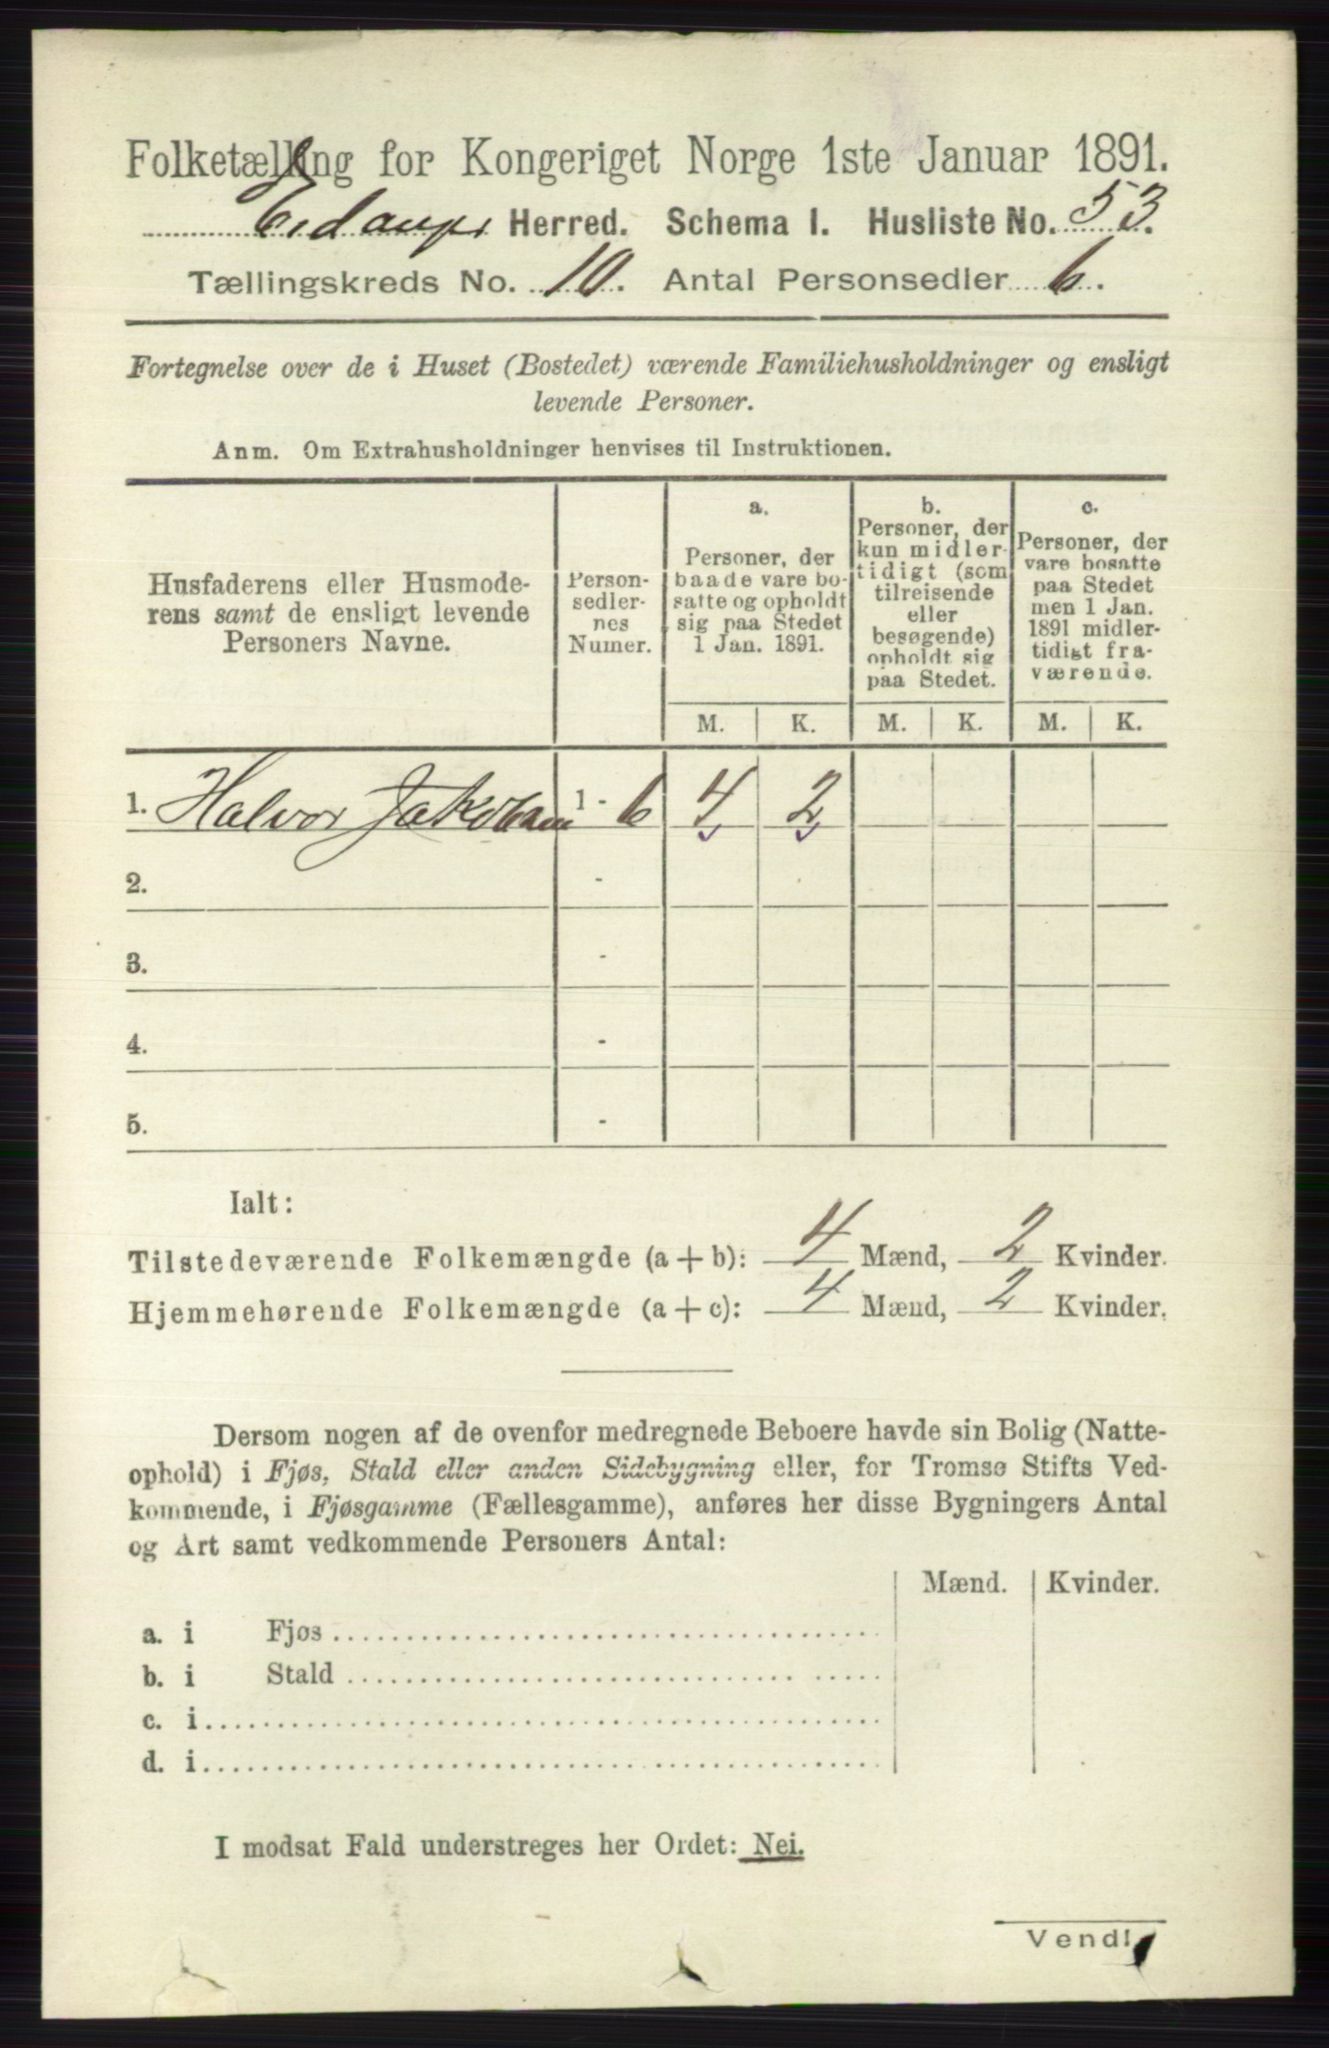 Folketælling for Kongeriget Norge 1ste Januar 1891.
Eidanger Herred. Schema I. Husliste No. 53.
Tællingskreds No. 10. Antal Personsedler 6.
Fortegnelse over de i Huset (Bostedet) værende Familiehusholdninger og ensligt
levende Personer.
Anm. Om Extrahusholdninger henvises til Instruktionen.
Husfaderens eller Husmode-
rens samt de ensligt levende
Personers Navne.
Person-
sedler-
nes
Numer.
a.
Personer, der
baade vare bo-
satte og opholdt
sig paa Stedet
1 Jan. 1891.
b.
Personer, der
kun midler-
tidigt (som
tilreisende
eller
besøgende)
opholdt sig
paa Stedet.
c.
Personer, der
vare bosatte
paa Stedet
men 1 Jan.
1891 midler-
tidigt fra-
værende.
M. K. M. K. M. K.
1. Halvor Jakobsen 1 - 6 4 2
2. -
3. -
4. -
5. -
Ialt:
Tilstedeværende Folkemængde (a + b): 4 Mænd, 2 Kvinder.
Hjemmehørende Folkemængde (a + c): 4 Mænd, 2 Kvinder.
Dersom nogen af de ovenfor medregnede Beboere havde sin Bolig (Natte-
ophold) i Fjøs, Stald eller anden Sidebygning eller, for Tromsø Stifts Ved-
kommende, i Fjøsgamme (Fællesgamme), anføres her disse Bygningers Antal
og Art samt vedkommende Personers Antal:
Mænd. Kvinder.
a. i Fjøs
b. i Stald
c. i
d. i
I modsat Fald understreges her Ordet: Nei.
Vend!